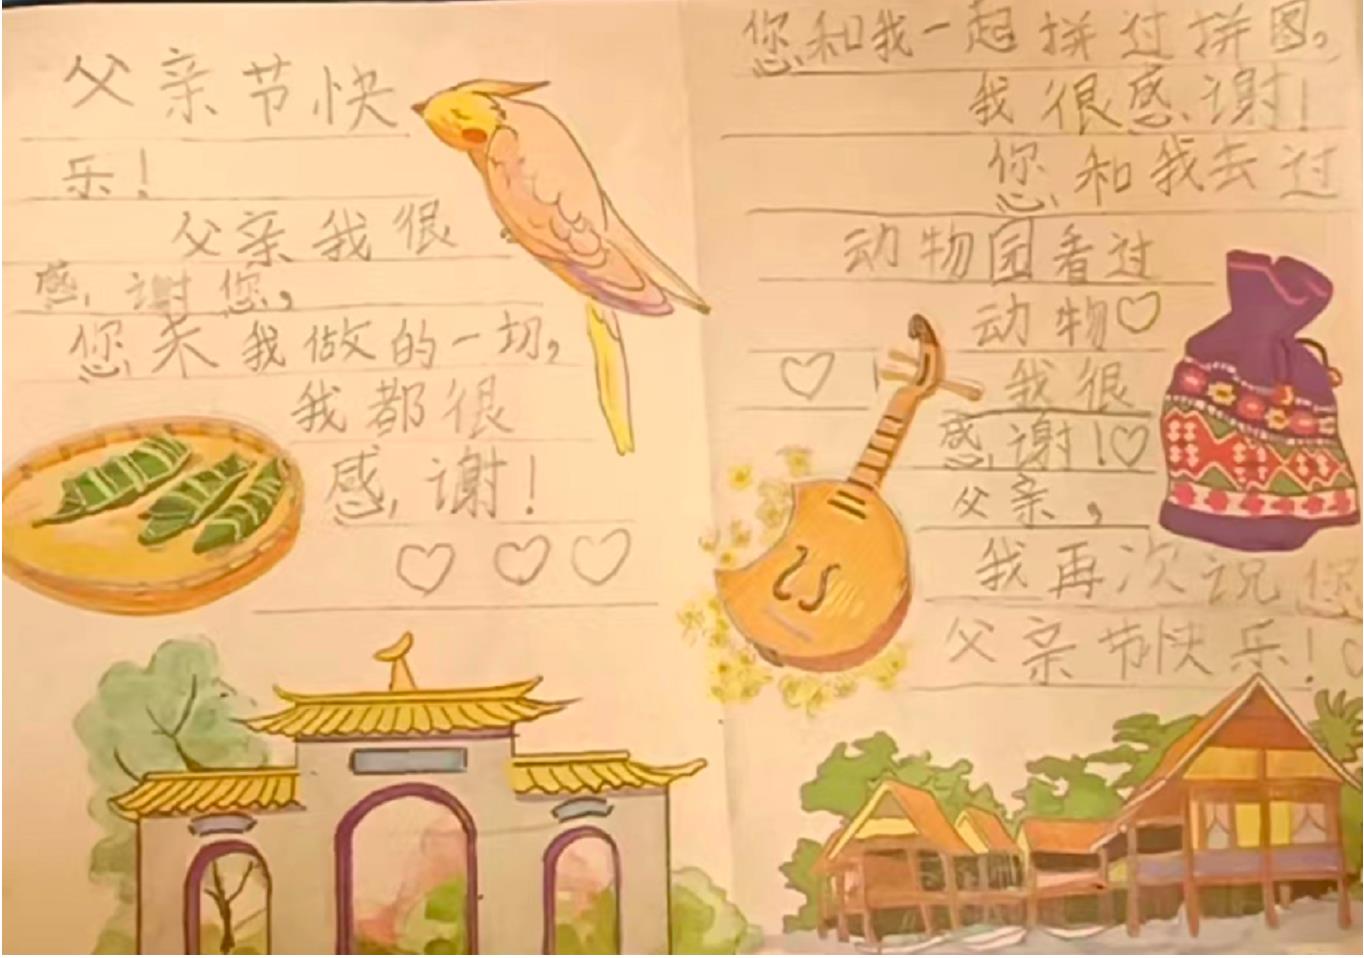 父亲节快
乐！
父亲我很
感谢您，
您未我做的一切，
我都很
感谢！
您和我一起拼过拼图，
我很感谢！
您和我去过
动物园看过
动物♡
♡ 我很
感谢！♡
父亲，
我再次说您
父亲节快乐！